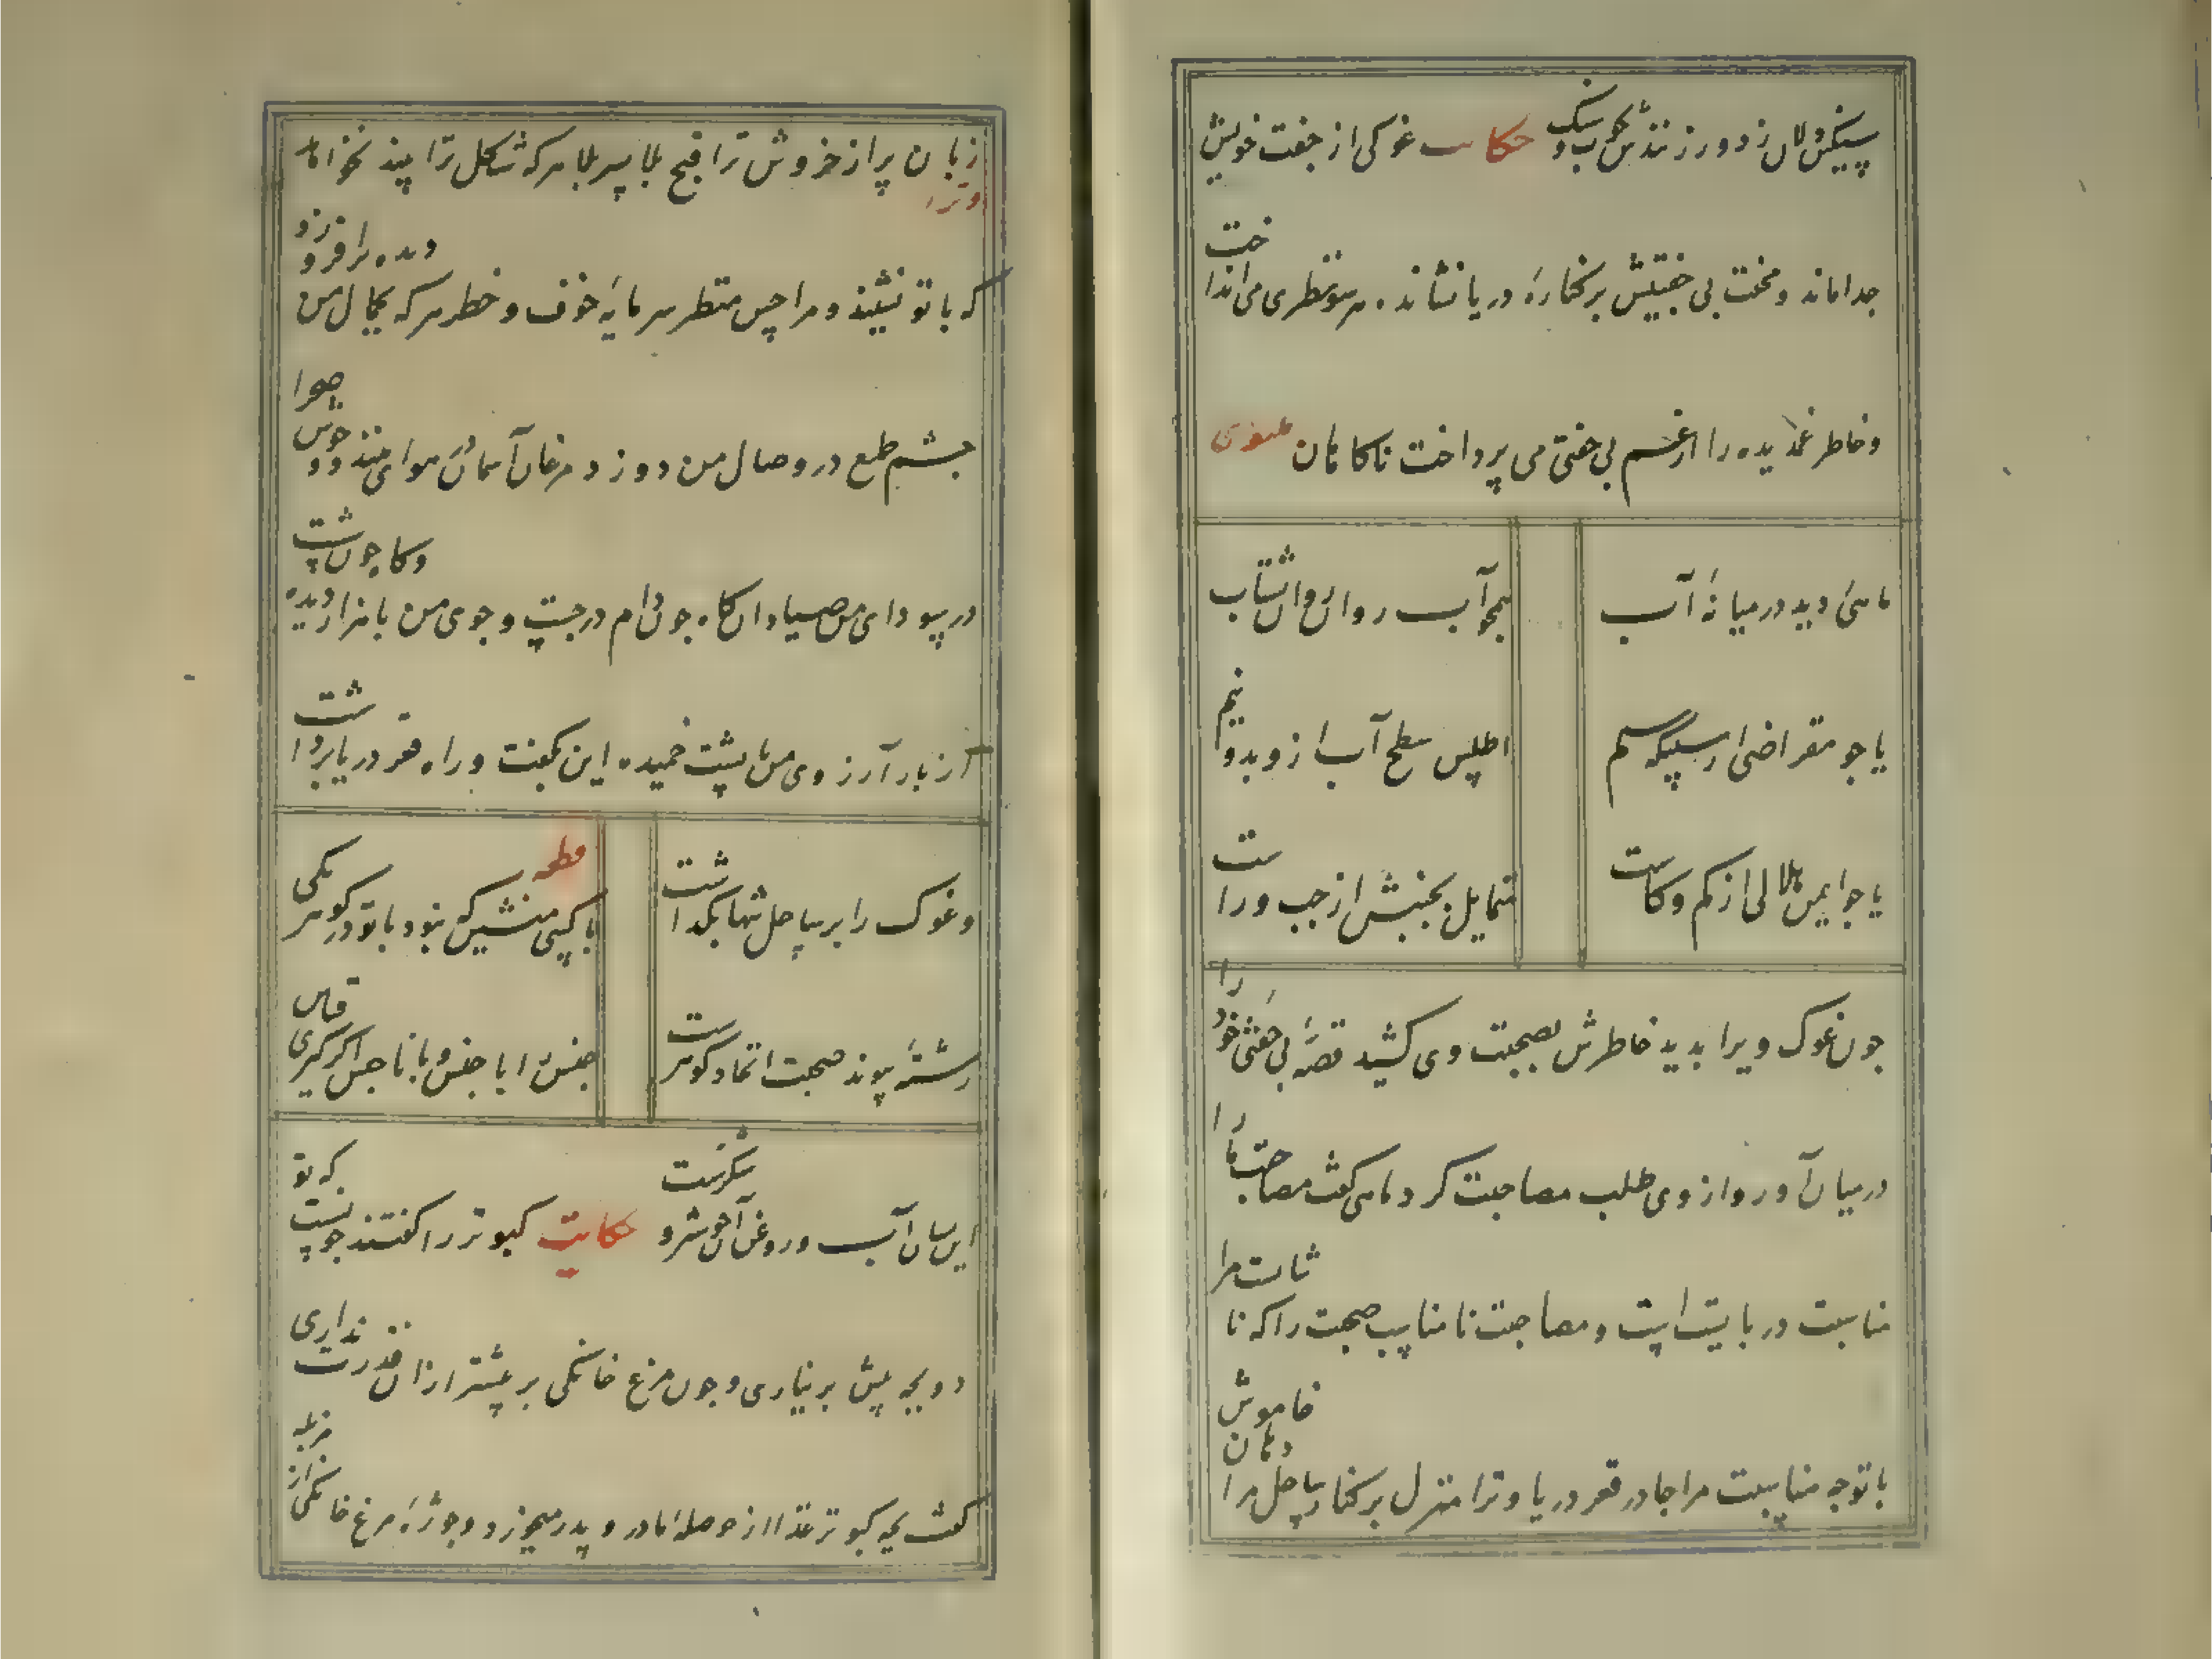 حکایت غوکی از جفت خویش
جدا مانده و محنت بی جفتیش بر کنارهٔ دریا نشانده هر سو نظری می انداخت
و خاطر غمدیده را از غم بی جفتی می پرداخت ناکاهان مثنوی
ماهئی دید در میانهٔ آب
همچو آب روان روان بشتاب
یا چو مقراضی از سبیکهٔ سیم
اطلس سطح آب ازو بدو نیم
یا چو ایمن هلالی از کم و کاست
متمایل بجنبش از چپ و راست
چون غوک ویرا بدید خاطرش بصحبت وی کشید قصهٔ بی جفتی خود را
در میان آورد و از وی طلب مصاحبت کرد ماهی کفت مصاحبت را
مناسبت دربایست است و مصاحبت نامناسب صحبت را که ناشایست مرا
با تو چه مناسبت مرا جا در قعر دریا و ترا منزل بر کنار ساحل مرا دهان خاموش
و ترا زبان پر از خروش ترا قبح لقا سپر بلا هر که شکل ترا بیند نخواهد
که با تو نشیند و مرا حسن منظر سرمایهٔ خوف و خطر هر که بجمال من دیده برافروزد
چشم طمع در وصال من دوزد مرغان آسمان در هوای منند و وحوش صحرا
در سودای من صیادان کاه چون دام در جست و جوی من با هزار دیده و کاه چون شست
از بار آرزوی من با پشت خمیده این بکفت و راه قعر دریا برداشت
و غوک را بر ساحل تنها بکذاشت
قطعه
با کسی منشین که نبود با تو در کوهر یکی
رشتهٔ پیوند صحبت اتحاد کوهرست
جنس را با جنس و با ناجنس اکر کیری قیاس
این بسان آب و روغن آن چو شیر و شکرست
حکایت کبوتر را کفتند چونست که تو
دو بچه بیش بر نیاری و چون مرغ خانکی بر بیشتر از آن قدرت نداری
کفت بچه کبوتر غذا از حوصلهٔ مادر و پدر میخورد و جوژهٔ مرغ خانکی از مزبله